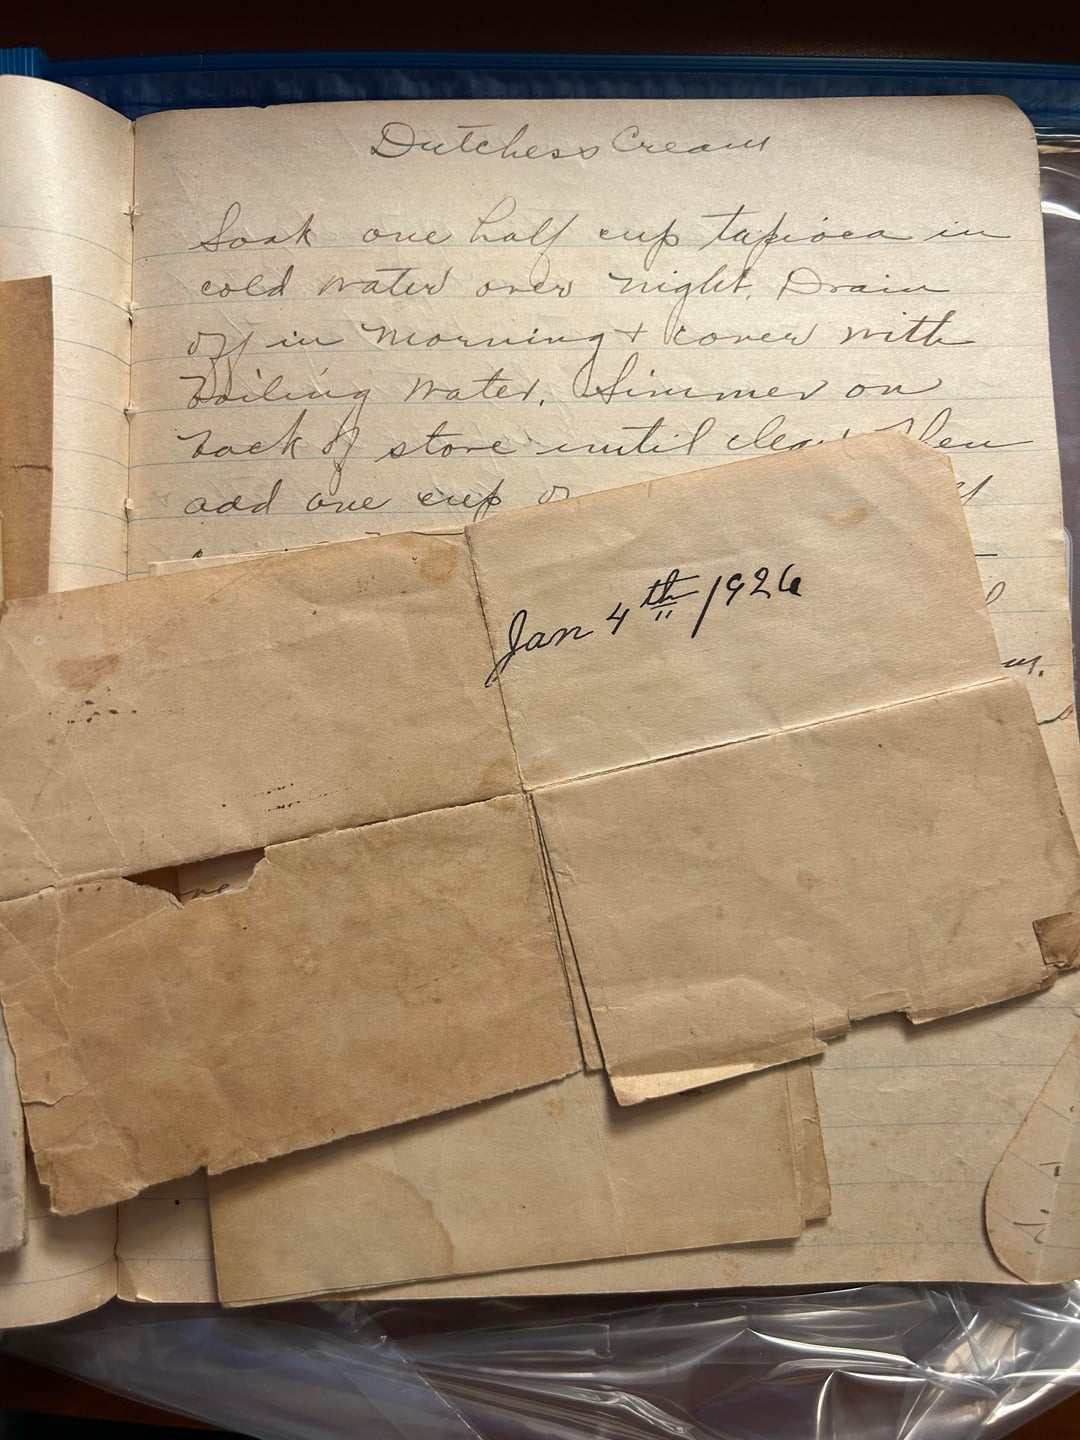 Dutchess Cream
Soak one half cup tapioca in
cold water over night. Drain
off in morning + cover with
boiling water. Simmer on
back of stove until clear. Then
add one cup of
Jan 4th 1926